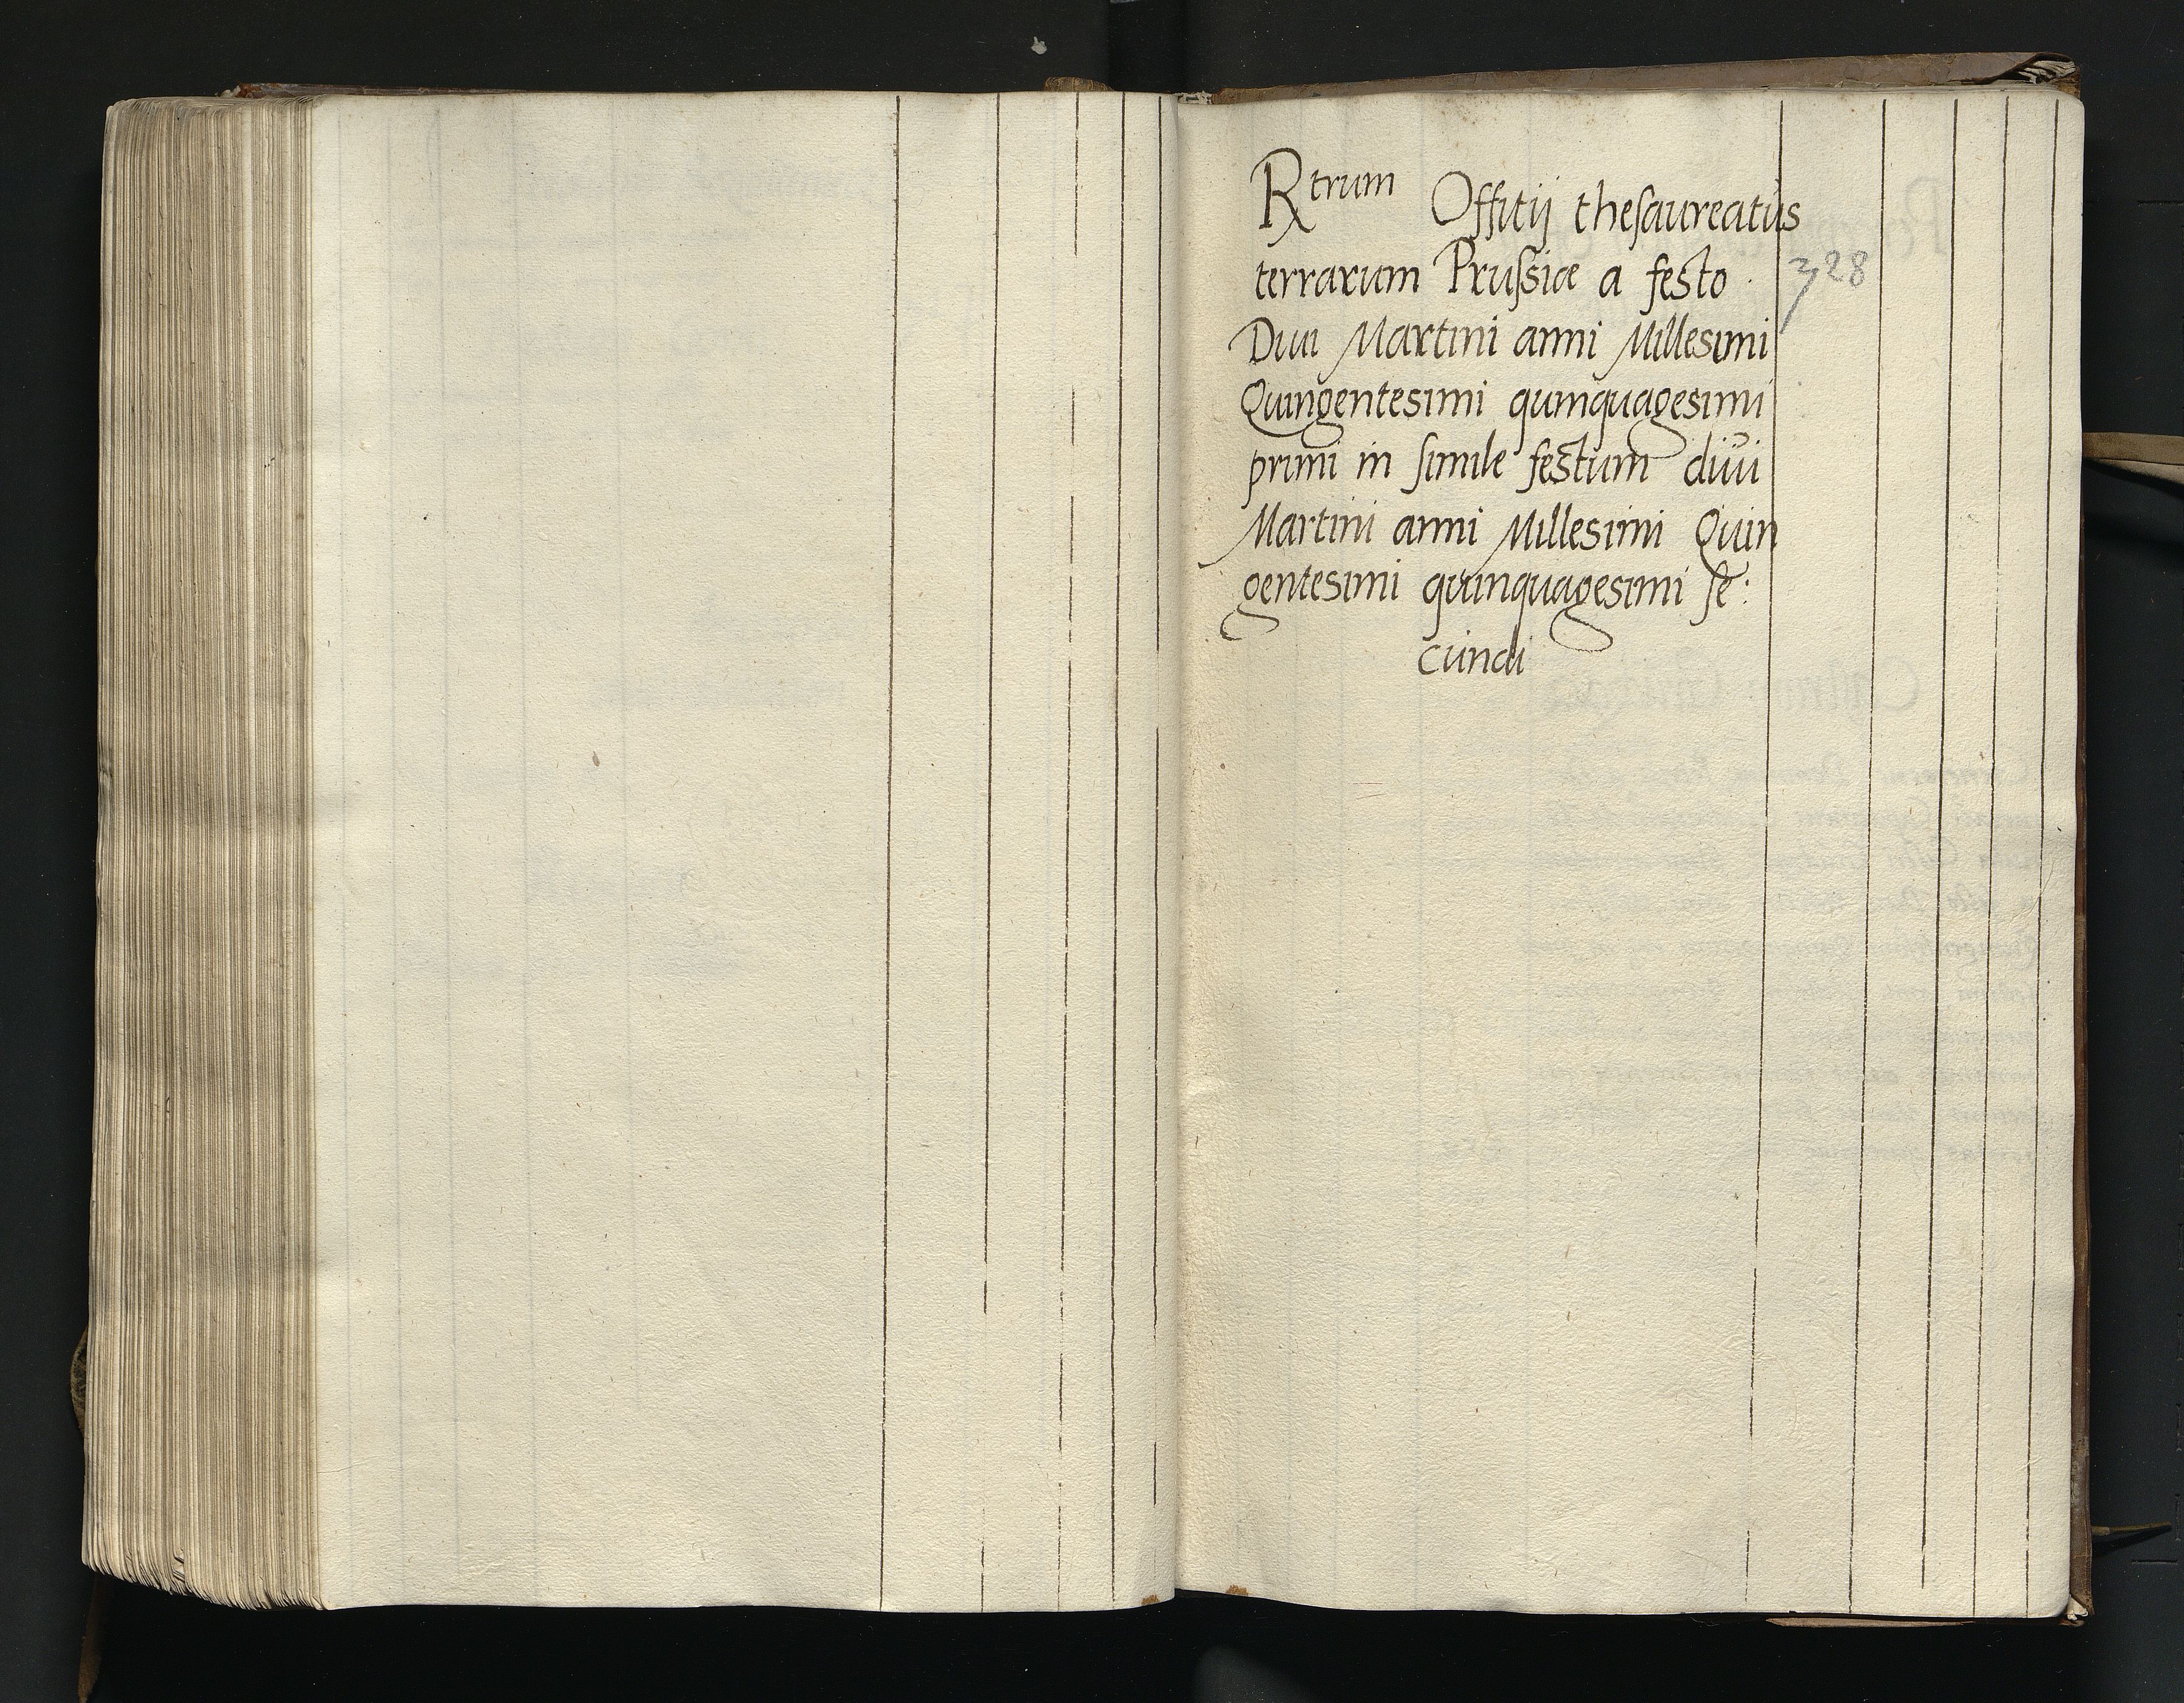 Rtrum Offitij thesaureatus
terrarum Prussiæ a festo
328
Diui Martini anni Millesimi
Quingentesimi quinquagesimi
primi in simile festum diũi
Martini anni Millesimi Quin
gentesimi quinquagesimi se:
cundi